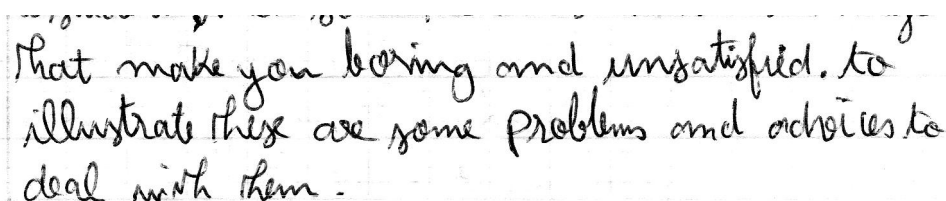 that make you boring and unsatisfied. to
illustrate these are some problems and adhoices to
deal with them.